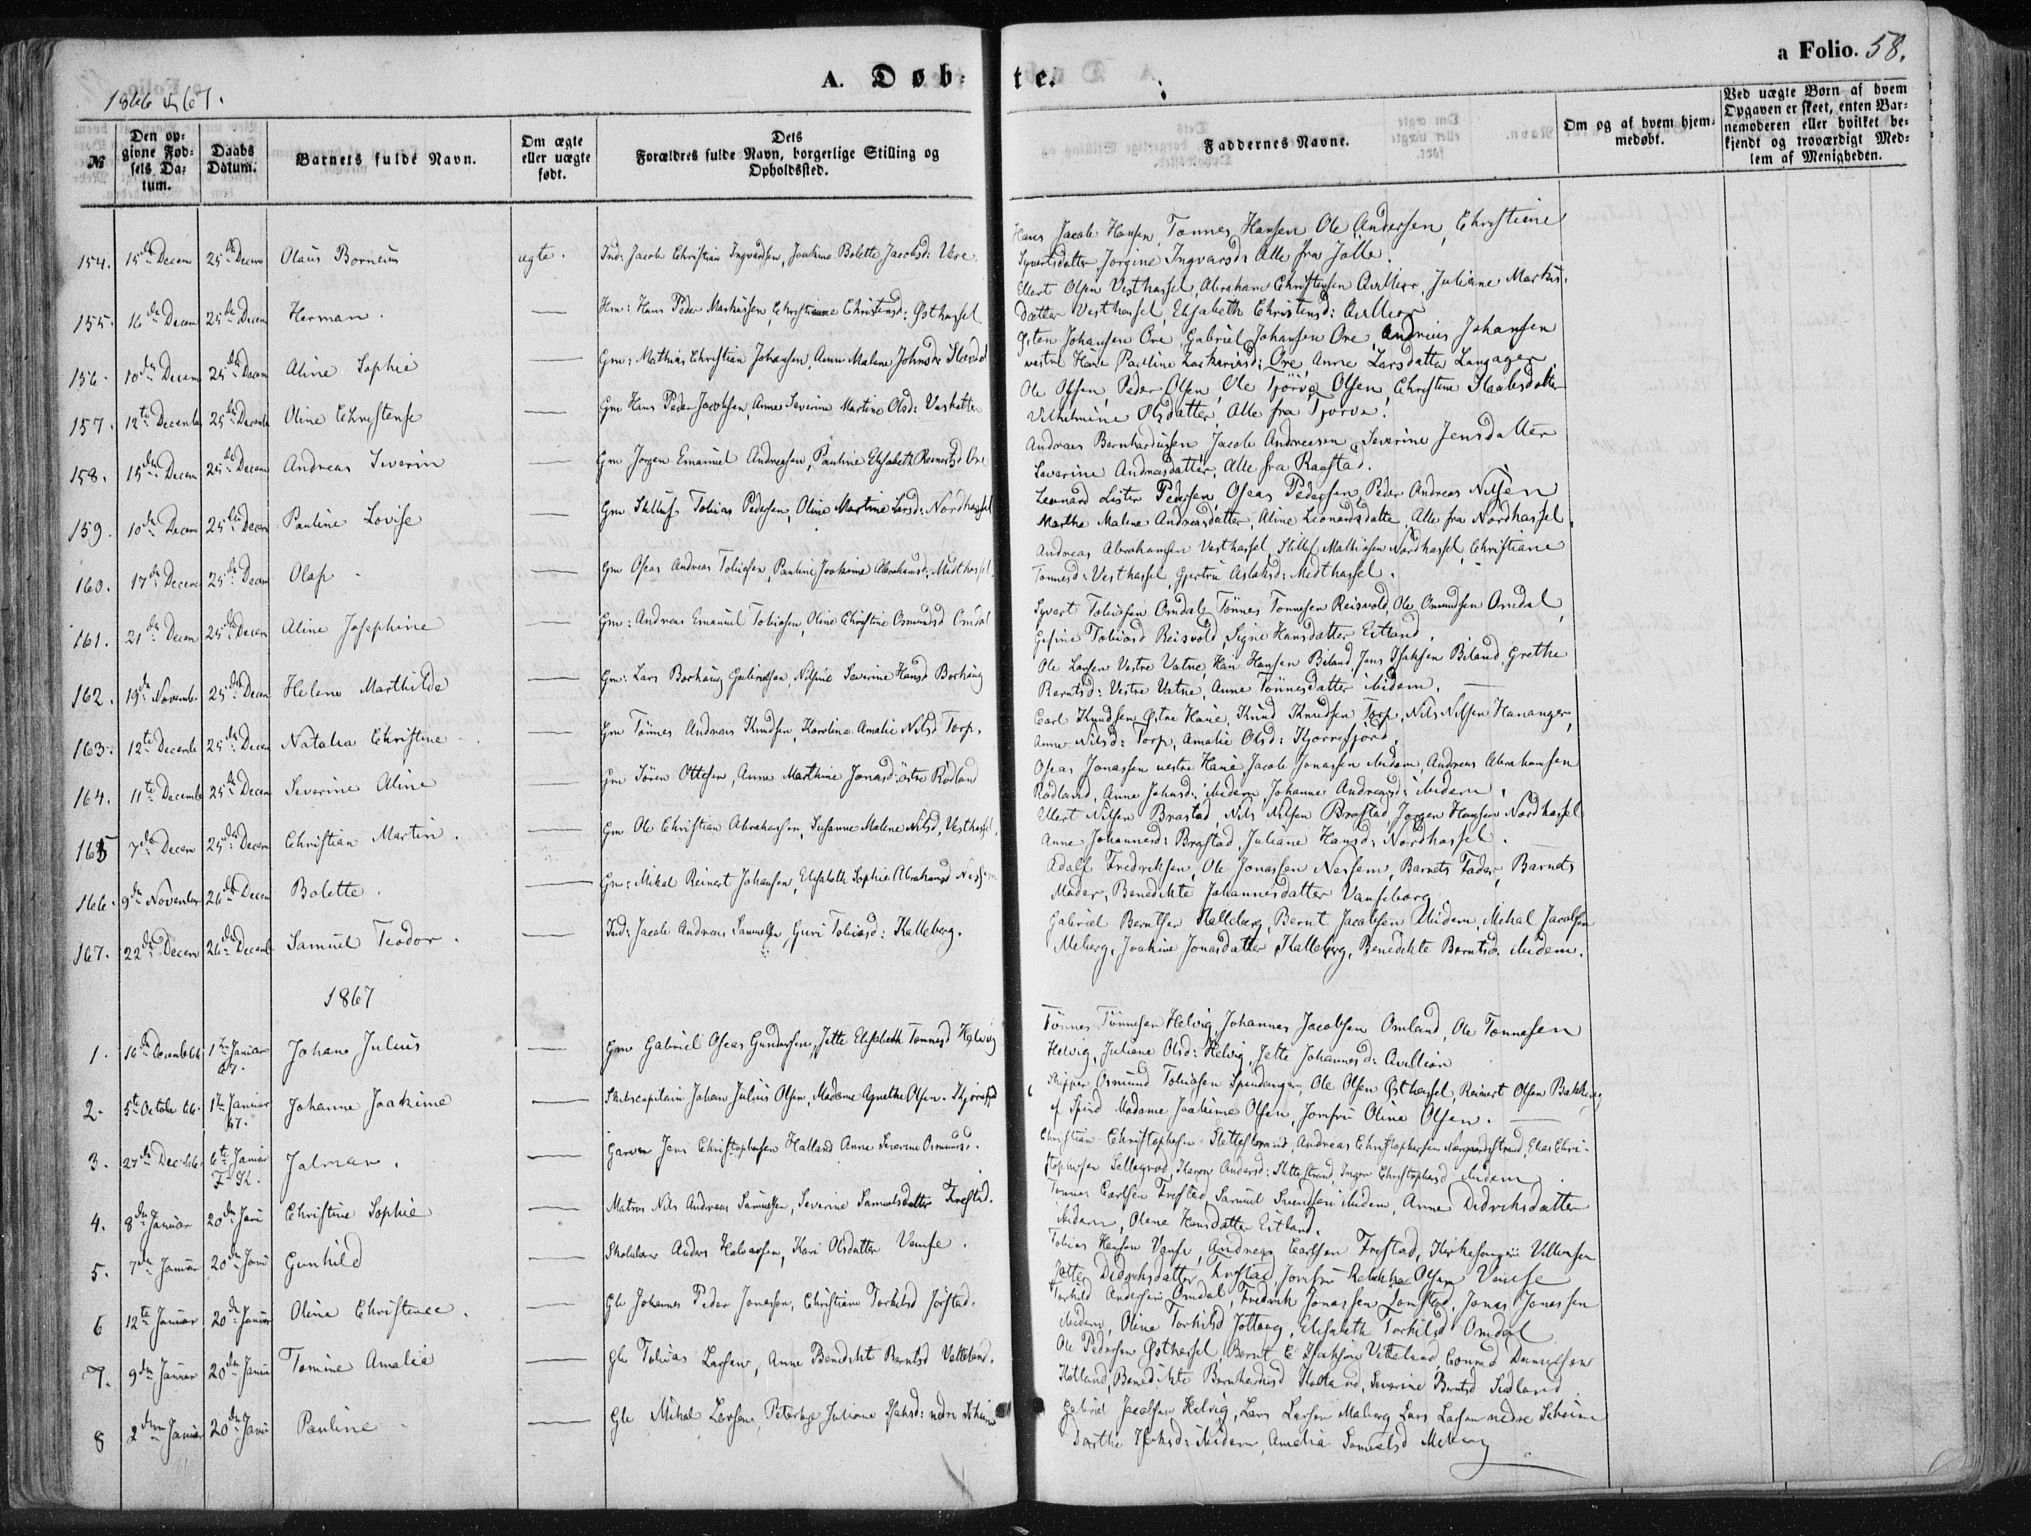 a Folio. 58.
A. Døb-te.
1866 & 67.
№
Den opgivne Fødsels Datum.
Daabs Datum.
Barnets fulde Navn.
Om ægte eller uægte født.
Dets Forældres fulde Navn, borgerlige Stilling og Opholdssted.
Faddernes Navne.
Om og af hvem hjemmedøbt.
Ved uægte Børn af hvem Opgaven er skeet, enten Barnemoderen eller hvilket bekjendt og troværdigt Medlem af Menigheden.
154. 15de Decem 25de Decem Olaus Borneus ægte. Ind: Jacob Christian Ingvardsen, Joakime Bolette Jacobsd: Vere
Hans Jacob Hansen, Tønnes Hansen Ole Andersen, Christiane
Syvertsdatter Jorgine Ingvarsd: Alle fra Jølle.
155. 16de Decem 25de Decem Herman. — Hm: Hans Peder Markussen, Christiane Christensd: Østhassel
Ellert Olsen Vesthassel, Abraham Christensen Qvillior, Juliane Markus-
datter Vesthassel, Elisabeth Christensd: Qvillior
156. 10de Decem 25de Decem Aline Sophie — Gm: Mathias Christian Johansen, Anne Malene Johnsdr
Østen Johansen Ore, Gabriel Johansen Ore, Andreas Johansen
vestre Hane Pauline Zachariasd: Ore, Anne Larsdatter Langager.
157. 12te Decembe 25de Decembe Oline Christense — Gm Hans Peder Jacobsen, Anne Severine Martine Olsd:
Ole Olsen, Peder Olsen, Ole Tjørve Olsen, Christine
Vilhelmine Olsdatter, Alle fra Tjørve.
158. 15de Decem 25de Decem Andreas Severin — Gm Jørgen Emanuel Andreasen, Pauline Elisabeth Reinertsd Ore
Andreas Bernhardussen, Jacob Andreasen Severine Jensdatter
Severine Andreasdatter, Alle fra Raastad.
159. 10de Decem 25de Decem Pauline Lovise — Gm Stilluf Tobias Pedersen, Oline Martine Larsd: Nordhassel
Leonard Lister Pedersen, Oseas Pedersen, Peder Andreas Nilsen
Marthe Malene Andreasdatter, Aline Leonardsdatter, Alle fra Nordhassel.
160. 17de Decem 25de Decem Olaf — Gm Oseas Andreas Tobiasen, Pauline Joakime Abrahamsd: Midthassel.
Andreas Abrahamsen Vesthassel, Stilluf Mathiasen Nordhassel, Christiane
Tønnesd: Vesthassel, Gjertru Aslaksd: Midthassel.
161. 21de Decem 25de Decem Aline Josephine — Gm: Andreas Emanuel Tobiasen, Oline Christine Osmundsd Omdal
Syvert Tobiasen Omdal, Tønnes Tønnesen Reisvold, Ole Omundsen Omdal,
Gesine Tobiasd Reisvold, Signe Hansdatter Eitland.
162. 19de Novembe 25de Decem Helene Marthilde — Gm: Lars Borhaug Gabrielsen, Nilsine Severine Hansd Borhaug
Ole Larsen Vestre Vatne, Hans Hansen Biland, Jens Isaksen Biland, Grethe
Berntsd: Vestre Vatne, Anne Tønnesdatter ibidem.
163. 12te Decembe 25de Decem Natalia Christine — Gm Tønnes Andreas Knudsen, Karoline Amalie Nilsd Torp.
Carl Knudsen Østre Hane, Knud Knudsen Torp, Nils Nilsen Hananger,
Anne Nilsd: Torp, Amalie Olsd: Kjørrefjord.
164. 11te Decembe 25de Decem Severine Aline — Gm Søren Ottesen, Anne Marthine Jonasd: østre Rødland
Oseas Jonassen vestre Hane, Jacob Jonassen ibidem, Andreas Abrahamsen
Rødland, Anne Johnsd: ibidem Johanne Andreasd: ibidem.
165 7de Decem 25de Decem Christian Martin. — Gm Ole Christian Abrahamsen, Susanne Malene Nilsd, Vesthassel,
Ellert Nilsen Brastad, Nils Nilsen Brastad, Jørgen Hansen Nordhassel
Anne Johannesd: Brastad, Juliane Hansd: Nordhassel.
166. 9de November 26de Decem Bolette. — Gm: Mikal Reinert Johansen, Elisabeth Sophie Abrahamsd
Adolf Fredreksen, Ole Jonassen Nessem, Barnets Fader, Barnets
Moder, Benedikte Johannesdatter Vanseborg.
167. 22de Decem 26de Decemb Samuel Teodor. — Ind: Jacob Andreas Samuelsen, Guri Tobiasd: Kalleberg.
Gabriel Berntsen Kalleberg, Bernt Jacobsen ibidem, Mikal Jacobsen
Meberg, Joakine Jonasdatter Kalleberg, Benedikte Berntsd: ibidem.
1867
1. 16de Decembe 66 1ste Januar 67. Johane Julius — Gm Gabriel Oseas Gundersen, Jette Elisabeth Tønnesd Helvig
Tønnes Tønnesen Helvig, Johannes Jacobsen Omland, Ole Tønnesen
Helvig, Juliane Olsd: Helvig, Jette Johannesd: Qvillior
2. 5te Octobe 66. 1ste Januar 67. Johanne Joakime — Skibscapitain Johan Julius Olsen, Madame Agnethe Olsen.
Skipper Osmund Tobiasen Spindanger, Ole Olsen Østhassel, Reinert Olsen
Madame Joakime Olsen, Jomfru Oline Olsen.
3. 27de Dec 66. 6te Januar F. K. Jalmar. — Garver Jens Christophersen Halland Anne Severine Osmundsd.
Christian Christophersen Andreas Christophersen Elias Chri-
stophersen Karen Andersd: Inger Christophersd ibidem.
4. 8de Januar 20de Janu Christine Sophie — Matros Nils Andreas Samuelsen, Severine Samuelsdatter Frestad.
Tønnes Carlsen Frestad, Samuel Svendsen ibidem, Anne Didreksdatter
ibidem, Olene Hansdatter Eitland.
5. 7de Januar 20de Janu Gunhild — Skolelærer Anders Halvorsen, Kari Olsdatter Vanse.
Tobias Hansen Vanse, Andreas Carlsen Frestad, Kirkesanger Villumsen
Jette Didreksdatter Frestad, Jomfru Rebekka Olsen Vanse
6 12te Januar 20de Januar Oline Christence. — Gle Johannes Peder Jonassen, Christiane Torkildsd Jørstad.
Torkild Andersen Omdal, Fredrik Jonassen Jonas Jonassen
ibidem, Oline Torkildsd Elisabeth Torkildsd Omdal
7. 9de Januar 20de Janua Tomine Amalie — Gle Tobias Larsen, Anne Benedikt Berntsd Vetteland.
Ole Pedersen Østhassel, Bernt E Isaksen Vetteland, Conrad Danielsen
Benedikte Bernhardusd Severine Berntsd
8 2den Januar 20de Janu Pauline — Gle Mikal Larsen, Juliane Isaksd: nedre
Gabriel Jacobsen Helvig, Lars Larsen Maberg Lars Larsen nedre
Dorthe Isaksd: ibidem, Amalia Samuelsd Meberg